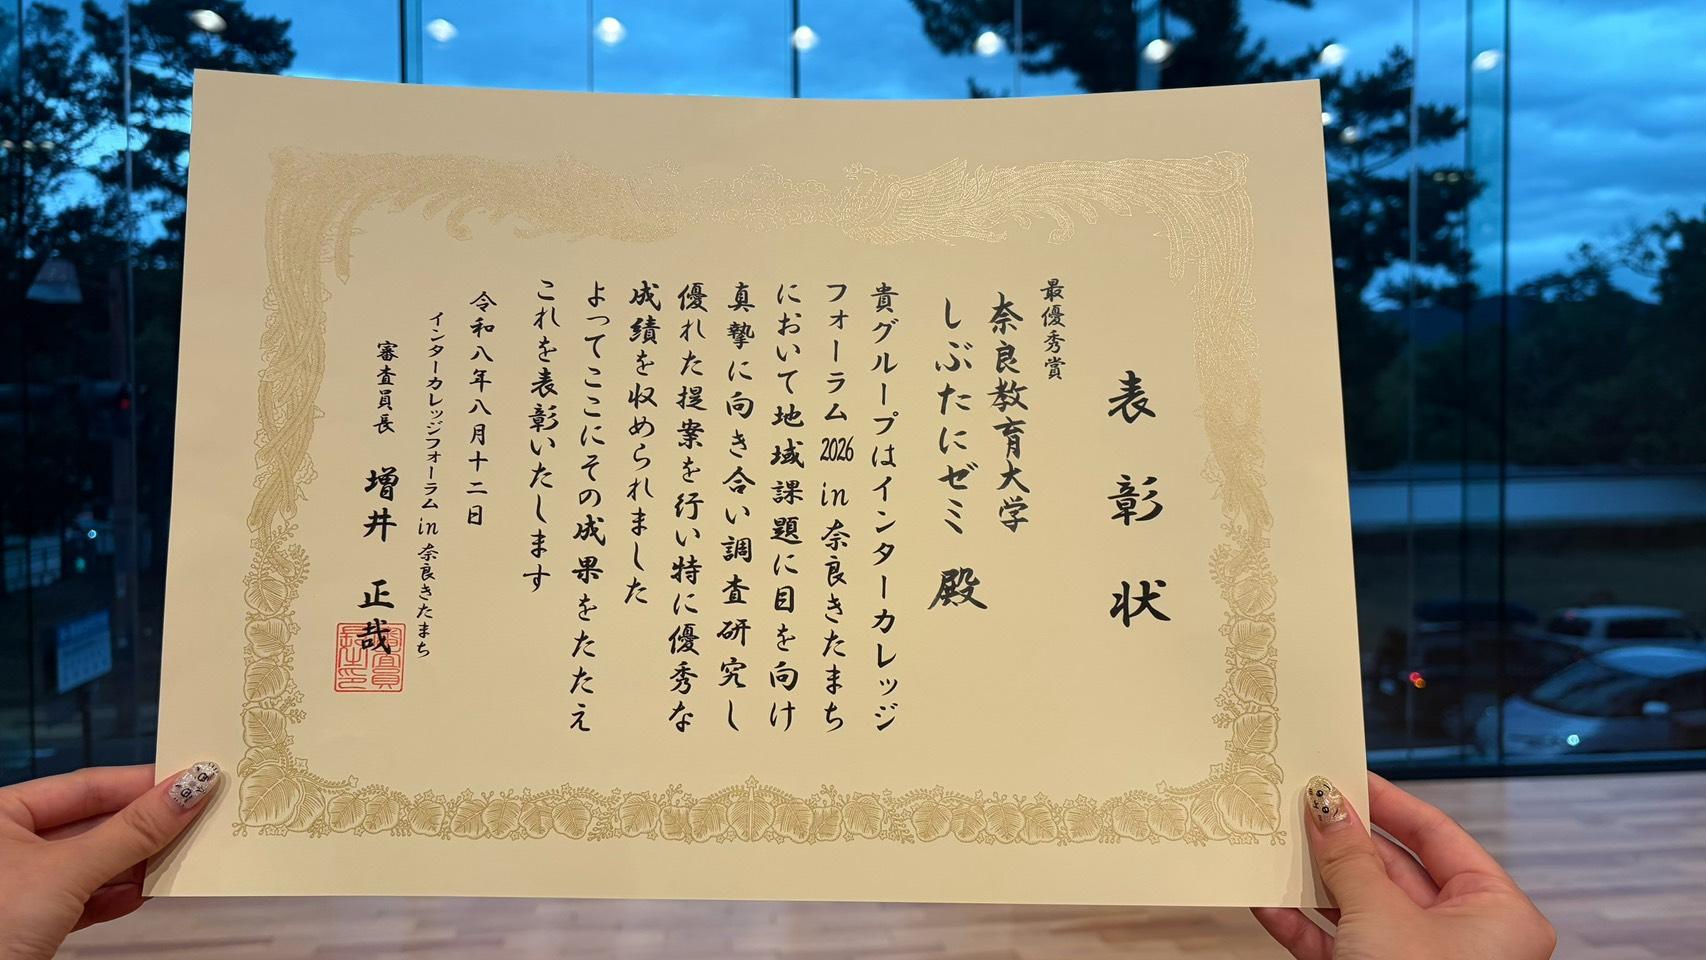 表彰状
最優秀賞
奈良教育大学
しぶたにゼミ 殿
貴グループはインターカレッジ
フォーラム2026in奈良きたまち
において地域課題に目を向け
真摯に向き合い調査研究し
優れた提案を行い特に優秀な
成績を収められました
よってここにその成果をたたえ
これを表彰いたします
令和八年八月十二日
インターカレッジフォーラムin奈良きたまち
審査員長 増井 正哉